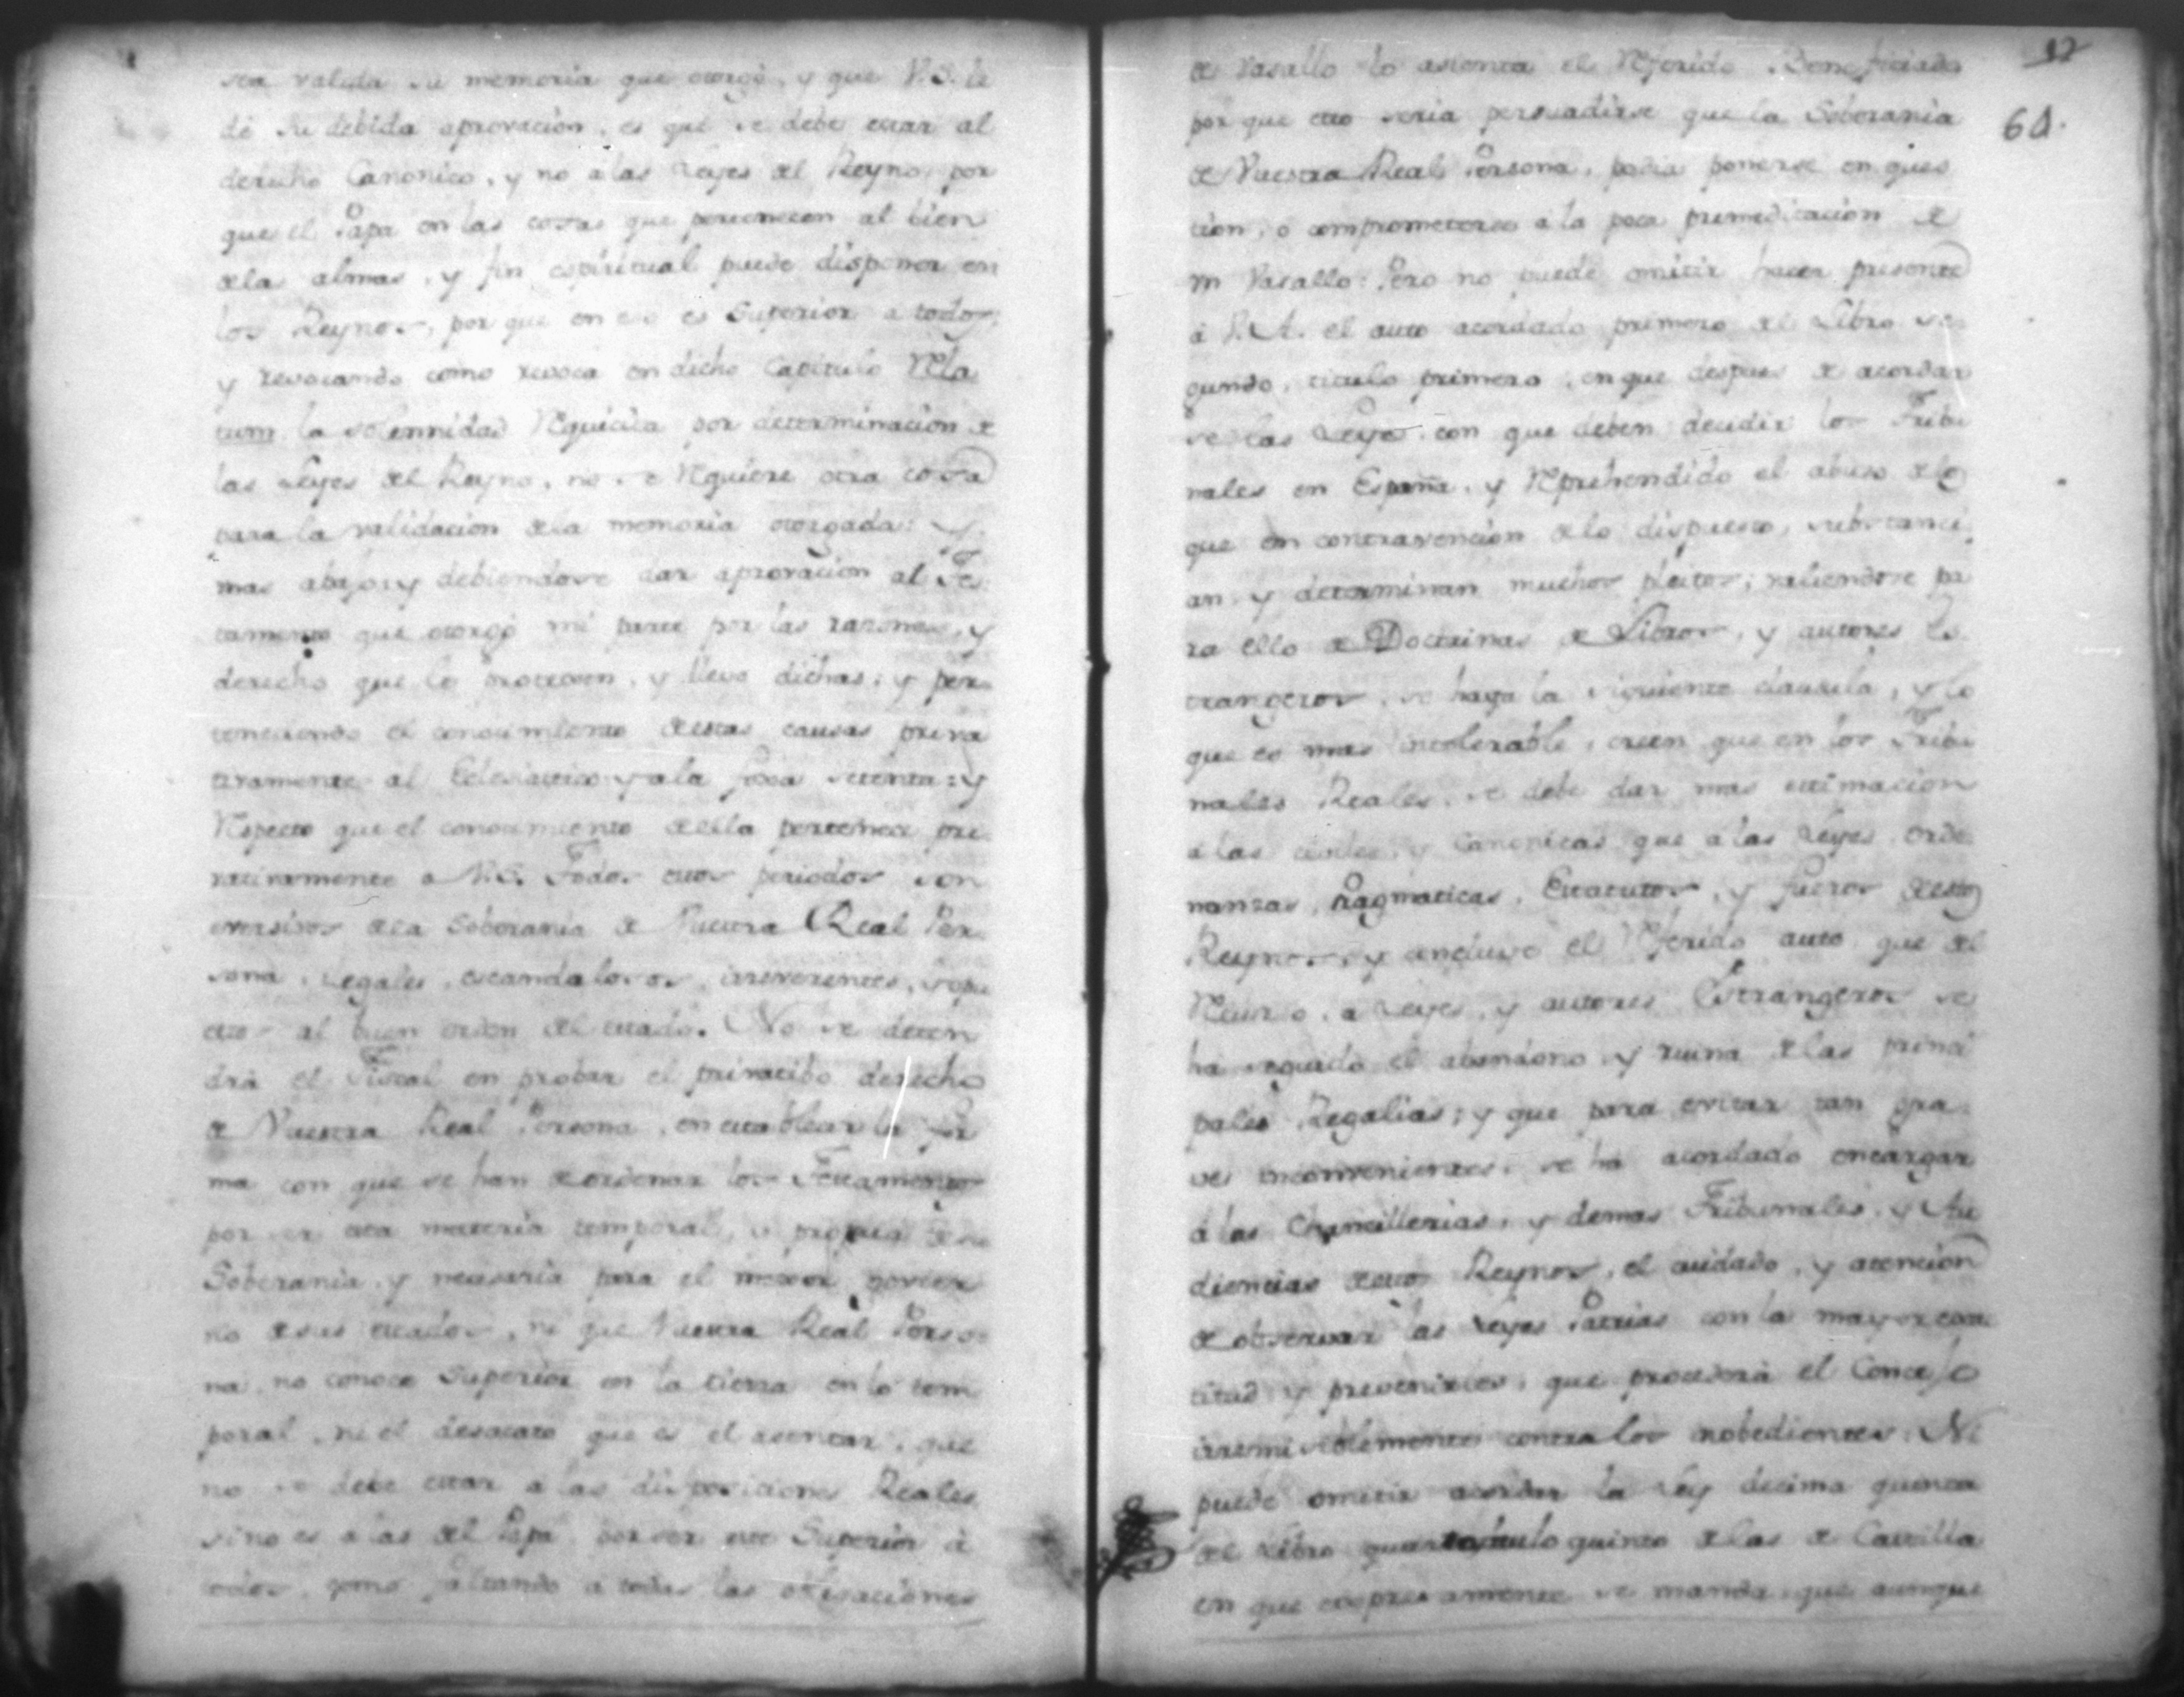 sea valida su memoria que otorgò, y que V.S. le
dè su debida aprovacion, es que se debe estar al
derecho Canonico, y no alas Leyes del Reyno, por
que el Papa en las cosas que pertenecen al bien
dela almas, y fin espiritual puede disponer en
los Reynos, por que en eso es Superior a todos;
y revocando como revoca en dicho Capitulo Rela
tum la solennidad Requirida por determinacion de
las Leyes del Reyno, no se Requiere otra cosa
para la validacion dela memoria otorgada: Y
mas abajo: y debiendose dar aprovacion al Tes
tamento que otorgò mi parte por las razones, y
derecho que lo protexen, y llevo dichas; y per
teneciendo el conocimiento destas causas priva
tivamente al Eclesiastico: y ala foxa setenta: y
Respecto que el conocimiento della pertenece pri
vativamente a V.S. Todos estos periodos son
eversivos dela Soberania de Vuestra Real Per
sona, Legales, escandalosos, irreverentes, y opu
estos al buen orden del estado. No se deten
drà el Fiscal en probar el privatibo derecho
de Vuestra Real Persona, en establecer la for
ma con que se han de ordenar los Testamentos
por ser esta materia temporal, y propia de su
Soberania, y necesaria para el mexor govier
no de sus estados, ni que Vuestra Real Perso
na, no conoce Superior en la tierra en lo tem
poral, ni el desacato que es el asentar, que
no se debe estar a las disposiciones Reales
sino es a las del Papa, por ser este Superior à
todos, como faltando a todas las obligaciones
12
60.
de Vasallo lo asienta el Referido Beneficiado
por que esto seria persuadirse que la Soberania
de Vuestra Real Persona, podia ponerse en ques
tion, o comprometerse a la poca premeditacion de
un Vasallo: Pero no puede omitir hacer presente
à V.A. el auto acordado primero del Libro se
gundo, titulo primero, en que despues de acordar
se las Leyes con que deben decidir los Tribu
nales en España, y Reprehendido el abuso delo
que en contravencion delo dispuesto, substanci
an, y determinan muchos pleitos; valiendose pa
ra ello de Doctrinas de Libros, y autores Es
trangeros, se haya la siguiente clausula, y lo
que es mas intolerable, creen que en los Tribu
nales Reales, se debe dar mas estimacion
a las civiles, y Canonicas que a las Leyes, Orde
nanzas, Pragmaticas, Estatutos, y fueros destos
Reynos, y concluye el Referido auto que del
Recurso, a Leyes, y autores Estrangeros se
ha seguido el abandono y ruina delas princi
pales Regalias; y que para evitar tan gra
ves inconvenientes, se ha acordado encargar
à las Chancillerias, y demas Tribunales, y Au
diencias destos Reynos, el cuidado, y atencion
de observar las Leyes Patrias con la mayor exac
titud y prevenirles, que procederà el Concejo
irremisiblemente contra los inobedientes: Ni
puede omitir acordar la Ley decima quinta
del Libro quarto titulo quinto delas de Castilla
en que expresamente se manda que aunque